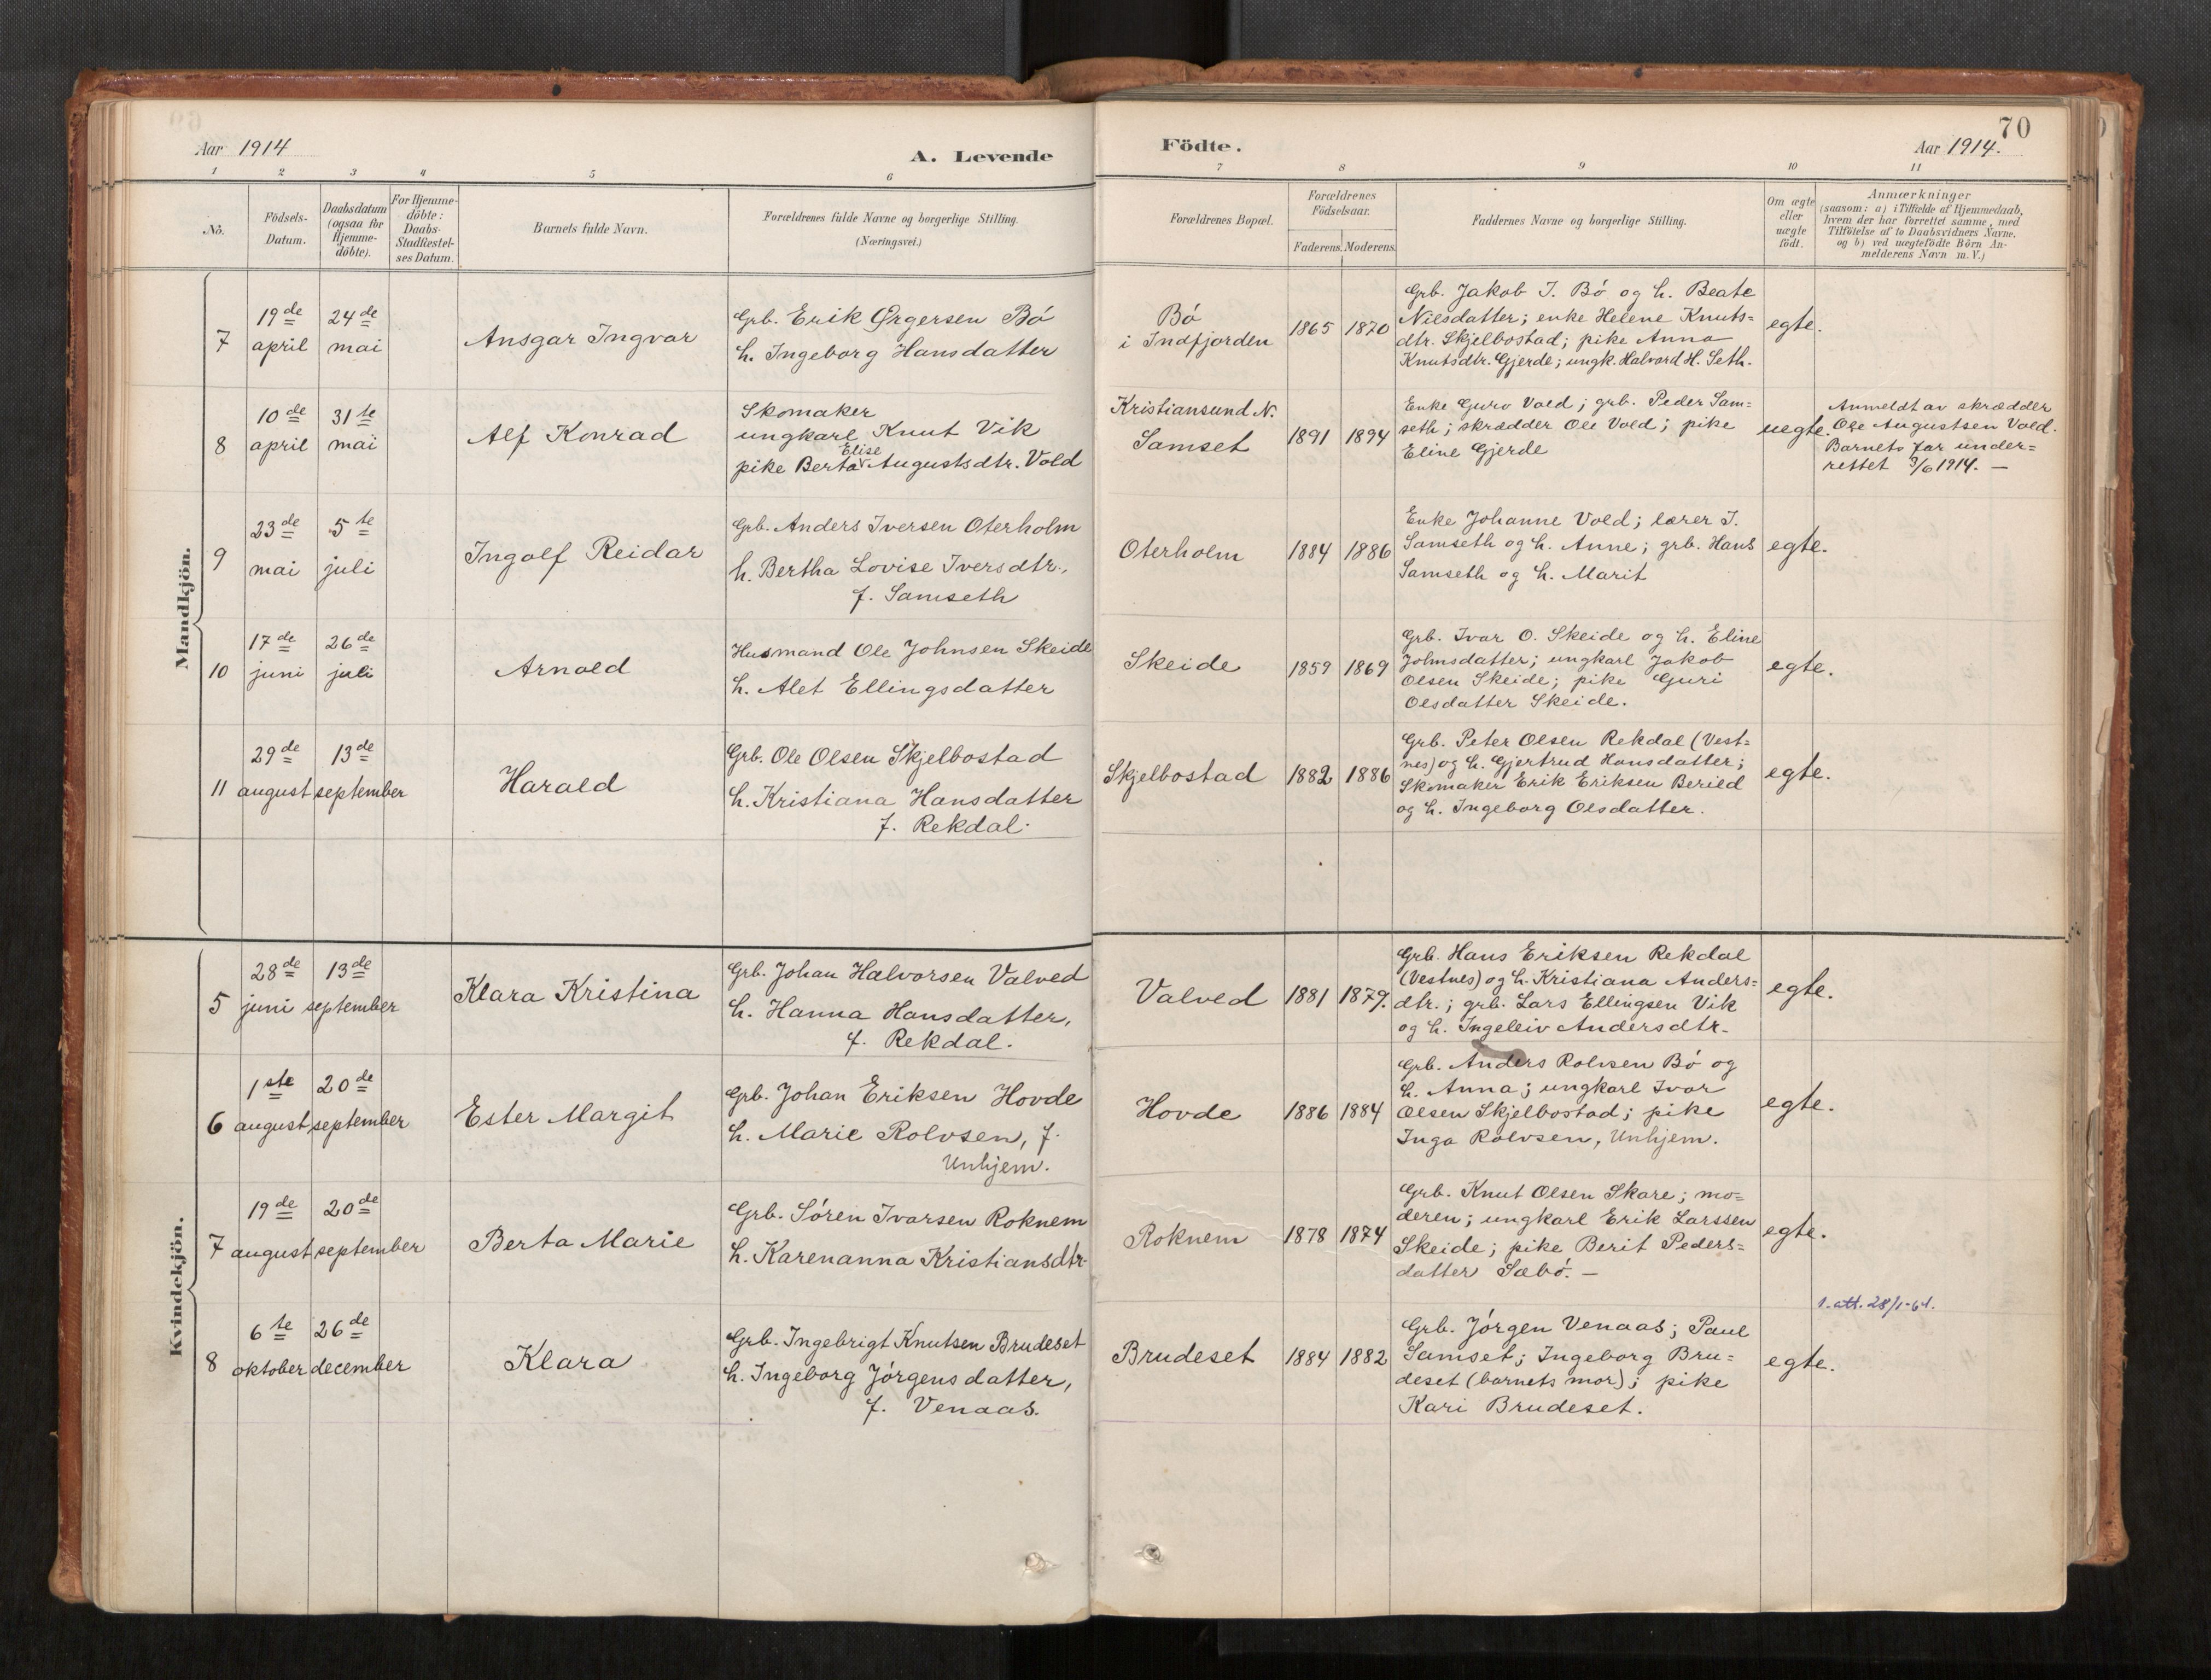 70
Aar 1914
A. Levende
Födte.
Aar 1914.
1 2 3 4 5 6 7 8 9 10 11
No.
Födsels-
Datum.
Daabsdatum
(ogsaa for
Hjemme-
döbte).
For Hjemme-
döbte:
Daabs-
Stadfæstel-
ses Datum.
Barnets fulde Navn.
Forældrenes fulde Navne og borgerlige Stilling.
(Næringsvei.)
Forældrenes Bopæl.
Forældrenes
Födselsaar.
Faderens. Moderens.
Faddernes Navne og borgerlige Stilling.
Om ægte
eller
uægte
födt.
Anmærkninger
(saasom: a) i Tilfælde af Hjemmedaab,
hvem der har forrettet samme, med
Tilföielse af to Daabsvidners Navne.
og b) ved uægtefödte Börn An-
melderens Navn m.V.)
Mandkjön.
7
19de
april
24de
mai
Ansgar Ingvar
Grb. Erik Ørgersen Bó
h. Ingeborg Hansdatter
Bó
i Indfjorden
1865 1870
Grb. Jakob J. Bó og h. Beate
Nilsdatter; enke Helene Knuts=
dtr. Skjelbostad; pike Anna
Knutsdtr. Gjerde; ungk. Halvard H. Seth.
egte.
8
10de
april
31te
mai
Alf Konrad
Skomaker
ungkarl Knut Vik
Elise
pike Berta Augustsdtr. Vold
Kristiansund N.
Samset
1891 1894
Enke Guro Vold; grb. Peder Sam=
seth; skrædder Ole Vold; pike
Eline Gjerde
uegte.
Anmeldt av skrædder
Ole Augustsen Vold.
Barnets far under=
rettet 3/6 1914. —
9
23de
mai
5te
juli
Ingolf Reidar
Grb. Anders Iversen Oterholm
h. Bertha Lovise Iversdtr.,
f. Samseth
Oterholm
1884 1886
Enke Johanne Vold; lærer I.
Samseth og h. Anne; grb. Hans
Samseth og h. Marit
egte.
10
17de
juni
26de
juli
Arnold
Husmand Ole Johnsen Skeide
h. Alet Ellingsdatter
Skeide
1859 1869
Grb. Ivar O. Skeide og h. Eline
Johnsdatter; ungkarl Jakob
Olsen Skeide; pike Guri
Olsdatter Skeide.
egte.
11
29de
august
13de
september
Harald
Grb. Ole Olsen Skjelbostad
h. Kristiana Hansdatter
f. Rekdal.
Skjelbostad
1882 1886
Grb. Peter Olsen Rekdal (Vest=
nes) og h. Gjertrud Hansdatter;
Skomaker Erik Eriksen Berild
og h. Ingeborg Olsdatter.
egte.
Kvindekjön.
5
28de
juni
13de
september
Klara Kristina
Grb. Johan Halvorsen Valved
h. Hanna Hansdatter,
f. Rekdal.
Valved
1881 1879.
Grb. Hans Eriksen Rekdal
(Vestnes) og h. Kristiana Anders=
dtr.; grb. Lars Ellingsen Vik
og h. Ingeleiv Andersdtr.
egte.
6
1ste
august
20de
september
Ester Margit
Grb. Johan Eriksen Hovde
h. Marie Rolvsen, f.
Unhjem.
Hovde
1886 1884
Grb. Anders Rolvsen Bó og
h. Anna; ungkarl Ivar
Olsen Skjelbostad; pike
Inga Rolvsen, Unhjem.
egte.
7
19de
august
20de
september
Berta Marie
Grb. Sóren Ivarsen Roknem
h. Karenanna Kristiansdtr.
Roknem
1878 1874
Grb. Knut Olsen Skare; mo=
deren; ungkarl Erik Larssen
Skeide; pike Berit Peders=
datter Sæbó. —
egte.
8
6te
oktober
26de
december
Klara
Grb. Ingebrigt Knutsen Brudeset
h. Ingeborg Jórgensdatter,
f. Venaas.
Brudeset
1884 1882
Grb. Jórgen Venaas; Paul
Samset; Ingeborg Bru=
deset (barnets mor); pike
Kari Brudeset.
egte.
1. att. 28/1-61.